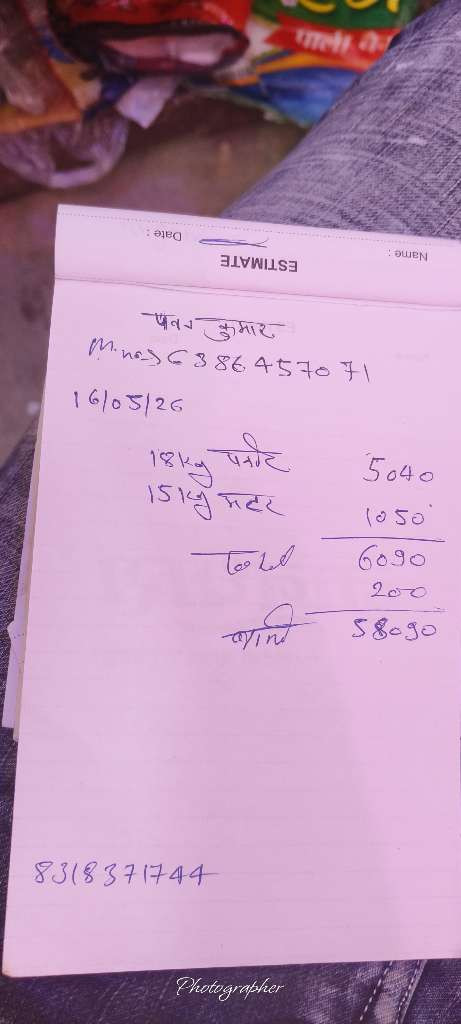 पाली
Name :
ESTIMATE
Date :
पवन कुमार
M.no→ 6386457071
16/05/26
18kg पनीर 5040
15kg मटर 1050
Total 6090
200
बाकी 58090
8318371744
Photographer